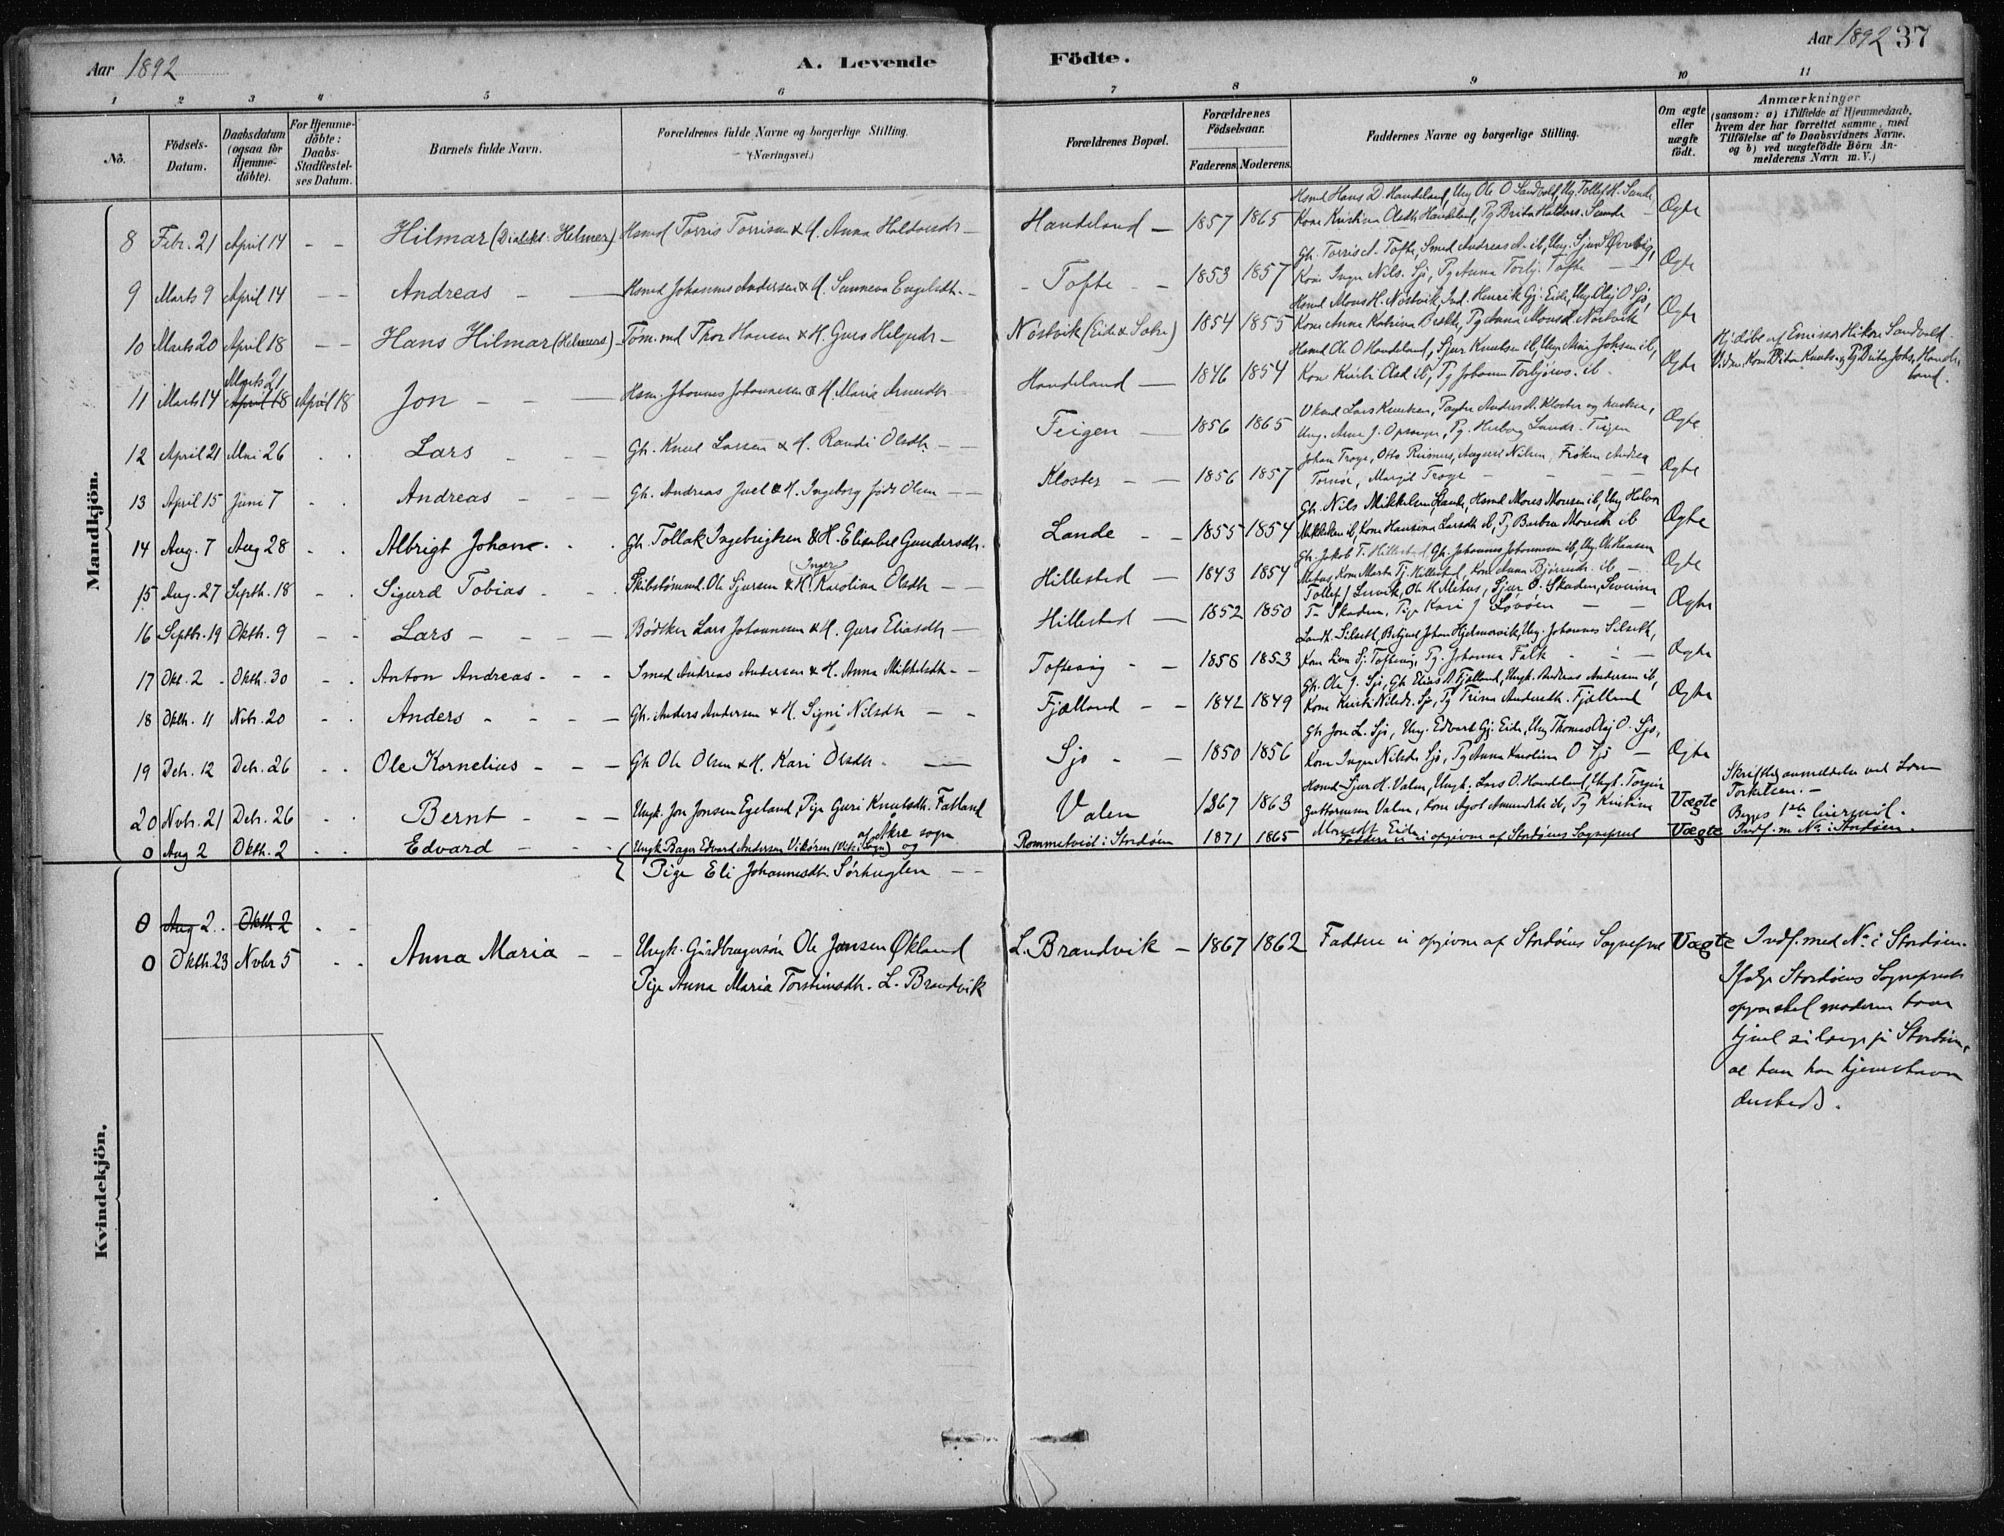 Aar 1892 A. Levende Födte. Aar 1892 37
1 2 3 4 5 6 7 8 9 10 11
No. Födsels-Datum. Daabsdatum (ogsaa for Hjemmedöbte). For Hjemmedöbte: Daabs-Stadfæstelses Datum. Barnets fulde Navn. Forældrenes fulde Navne og borgerlige Stilling. (Næringsvei.) Forældrenes Bopæl. Forældrenes Födselsaar. Faderens. Moderens. Faddernes Navne og borgerlige Stilling. Om ægte eller uægte födt. Anmærkninger (saasom: a) i Tilfælde af Hjemmedaab, hvem der har forrettet samme, med Tilföielse af to Daabsvidners Navne, og b) ved uægtefödte Börn Anmelderens Navn m. V.)
Mandkjön.
8 Febr. 21 April 14 - - Hilmar (Dialekt: Helmer) Hsmd Torris Torrisen & H. Anna Haldorsdtr - Handeland - 1857 1865 Hsmd Hans D. Handeland, Ung Ole O Sandvold, Ug. Tollef H. Sande
Kone Kristina Olsdtr Handeland, Pg Brita Haldors. Sunde Ægte
9 Marts 9 April 14 - - Andreas - - Hsmd Johannes Andersen & H. Sunneva Engelsdtr. - - Tofte - - 1853 1857 Gh. Torris A. Tofte, Smed Andreas A. ib, Ung. Sjur
Kone Inger Nils. Sjo, Pg Anna Torbj. Tofte Ægte
10 Marts 20 April 18 - - Hans Hilmar (Helmers) - Tömmd Thor Hansen & H. Guro Helgesdr - Nöstvik (Eide & Sætre) 1854 1855 Hsmd Mons H. Nöstvik, Ind. Henrik Gj. Eide, Ung Olaj O Sjo,
Kone Anna Katrina Brekke, Pg Anna Monsd. Nöstvik Ægte
11 Marts 14 Marts 21 April 18 April 18 Jon - - - Hsm. Johannes Johannesen & H. Maria Amundtr - Handeland - 1846 1854 Hsmd Ole O Handeland, Sjur Knutsen ib, Ung. Arne Johsen ib,
Kone Kristi Olsd ib, Pg Johanna Torbjörns. ib. Ægte Hj. döbt af
Vidner Kone Brita Knuts. og Pg Brita Johs. Handeland.
12 April 21 Mai 26 . . Lars - - - Gh. Knud Larsen & H. Randi Olsdtr. - - Feigen - 1856 1865 Lars Knutsen, Andreas A. Kloster og hustru,
Ung. Arne J. Opsanger, Pg. Herborg Landr. Feigen Ægte
13 April 15 Juni 7 - . Andreas - - - Gh. Andreas Juel & H. Ingeborg född Olsen - - Kloster - - 1856 1857 Johan Troye, Otto Reimers, August Nilsen, Fröken Andrea
Tornöe, Margit Troye Ægte
14 Aug. 7 Aug 28 . . Albrigt Johan . . Gh. Tollak Ingebrigtsen & H. Elisabet Gundersdtr. Lande - - 1855 1854 Gh. Nils Mikkelsen Lande, Hsmd Mons Monsen ib, Ung Halvor
Mikkelsen ib, Kone Hansina Larsdtr ib, Pg Barbra Monsdtr ib Ægte
15 Aug. 27 Septb. 18 - . Sigurd Tobias - - . Skibstömmd. Ole Sjursen & H. Inger Karolina Olsdtr - Hillestad - 1843 1854 Gh. Jakob T. Hillestad, Gh. Johannes Johannesen ib, Ung Ole Hansen
Metus, Kone Marta Tj. Hillestad, Kone Anna Björnsdr. ib - Ægte
16 Septb. 19 Oktb. 9 - - Lars - - - - Bödker Lars Johannesen & H. Guro Eliasdtr - Hillestad - 1852 1850 Tollef J Lervik, Ole H Metus, Sjur O. Skaden, Severina
T. Skaden, Pige Kari J. Lövöen - - Ægte
17 Okt. 2 - Oktb. 30 - . Anton Andreas - - - Smed Andreas Andersen & H. Anna Mikkelsdtr - - Toftevåg - - 1858 1853 Landh. Silseth, Johan Hjelmervik, Ung. Johannes Silseth,
Kone Lava Sj. Toftevåg, Pg. Johanna Falk - - Ægte
18 Oktb. 11 Novb. 20 - . Anders - - - - Gh. Anders Andersen & H. Signi Nilsdtr - - Fjælland - - 1842 1849 Gh. Ole J. Sjo, Gh Elias A. Fjælland, Ungk. Andreas Andersen ib,
Kone Kristi Nilsdr. Sjo, Pg Trina Andersdtr. Fjælland Ægte
19 Decb. 12 Decb. 26 . . Ole Kornelius - - - Gh Ole Olsen & H. Kari Olsdtr. - - Sjo - - 1850 1856 Gh. Jon L. Sjo, Ung. Edvard Gj. Eide, Ung Thomas Olaj O. Sjo,
Kone Inger Nilsdtr Sjo, Pg Anna Karolina O Sjo - Ægte
20 Novb. 21 Decb. 26 . . Bernt - - - Ungk. Jon Jonsen Egeland, Pige Guri Knutsdtr. Fatland Valen - 1867 1863 Hsmd Sjur H. Valen, Ungk. Lars O. Handeland, Ungk. Torger
Guttormsen Valen, Kone Agot Amundsdtr ib, Pg Kristina
Monsdtr Eide Uægte Skriftlig anmeldelse ved Lars
Torkelsen. -
Begges 1ste leiermål.
0 Aug 2 Oktb. 2 . . Edvard - - - Ungk. Bager Edvard Andersen Vikören (Vikör Sogn) og af Åkre sogn
Pige Eli Johannesdtr. Sörhuglen - - Rommetveit i Stordöen 1871 1865 Faddere ei opgivne af Stordöens Sognepræst Uægte Indf. m No. i Stordöen.
Kvindekjön.
0 Aug 2 . Oktb 2 . -
0 Oktb. 23 Novbr 5 . . Anna Maria - - Ungk. Gårdbrugersön Ole Jansen Økland
Pige Anna Maria Torsteinsdtr. L. Brandvik L. Brandvik - 1867 1862 Faddere ei opgivne af Stordöens Sognepræst Uægte Indf. med No. i Stordöen.
Ifölge Stordöens Sognepræsts
opgav skal moderen have
tjent så længe på Stordöen,
at hun har hjemstavn
dersteds.